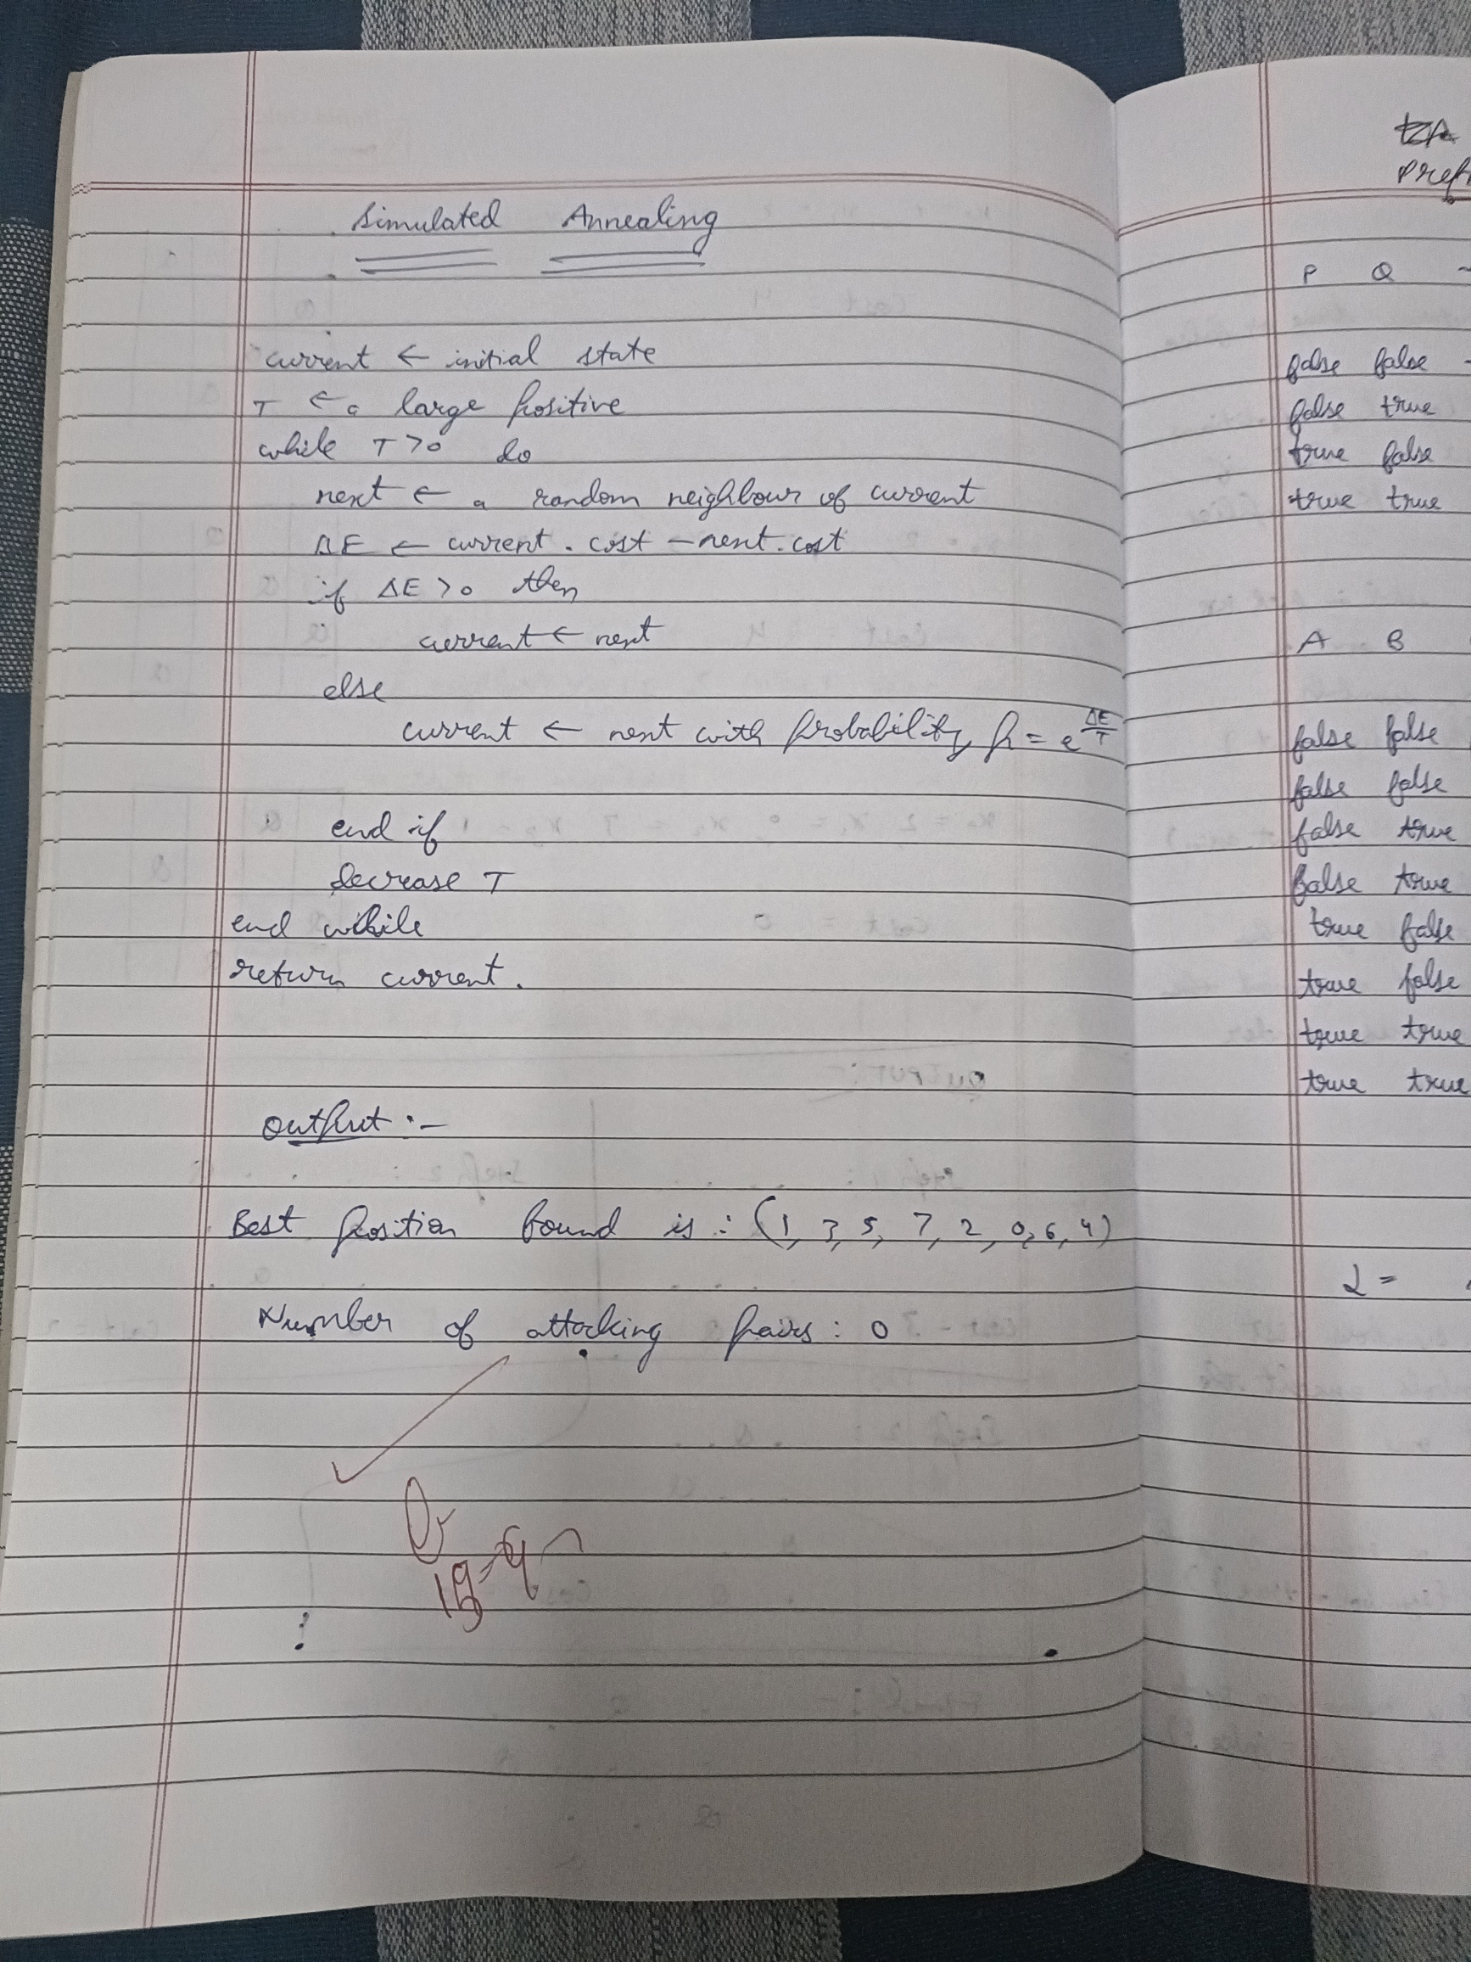 Simulated Annealing
current ← initial state
T ← a large positive
while T > 0 do
next ← a random neighbour of current
ΔE ← current.cost - next.cost
if ΔE > 0 then
current ← next
else
current ← next with probability p = e^ΔE/T
end if
decrease T
end while
return current.
Output :-
Best position found is : (1, 3, 5, 7, 2, 0, 6, 4)
Number of attacking pairs : 0
P Q
false false
false true
true false
true true
A B
false false
false false
false true
false true
true false
true false
true true
true true